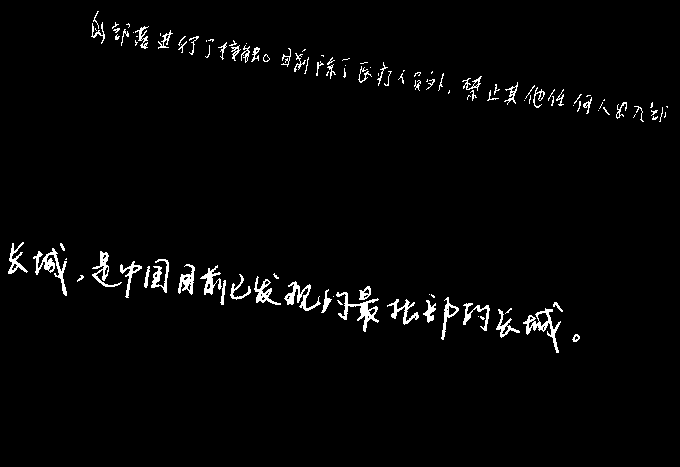 的部落进行了接触。目前除了医疗人员外，禁止其他任何人出入部
长城，是中国目前已发现的最北部的长城。